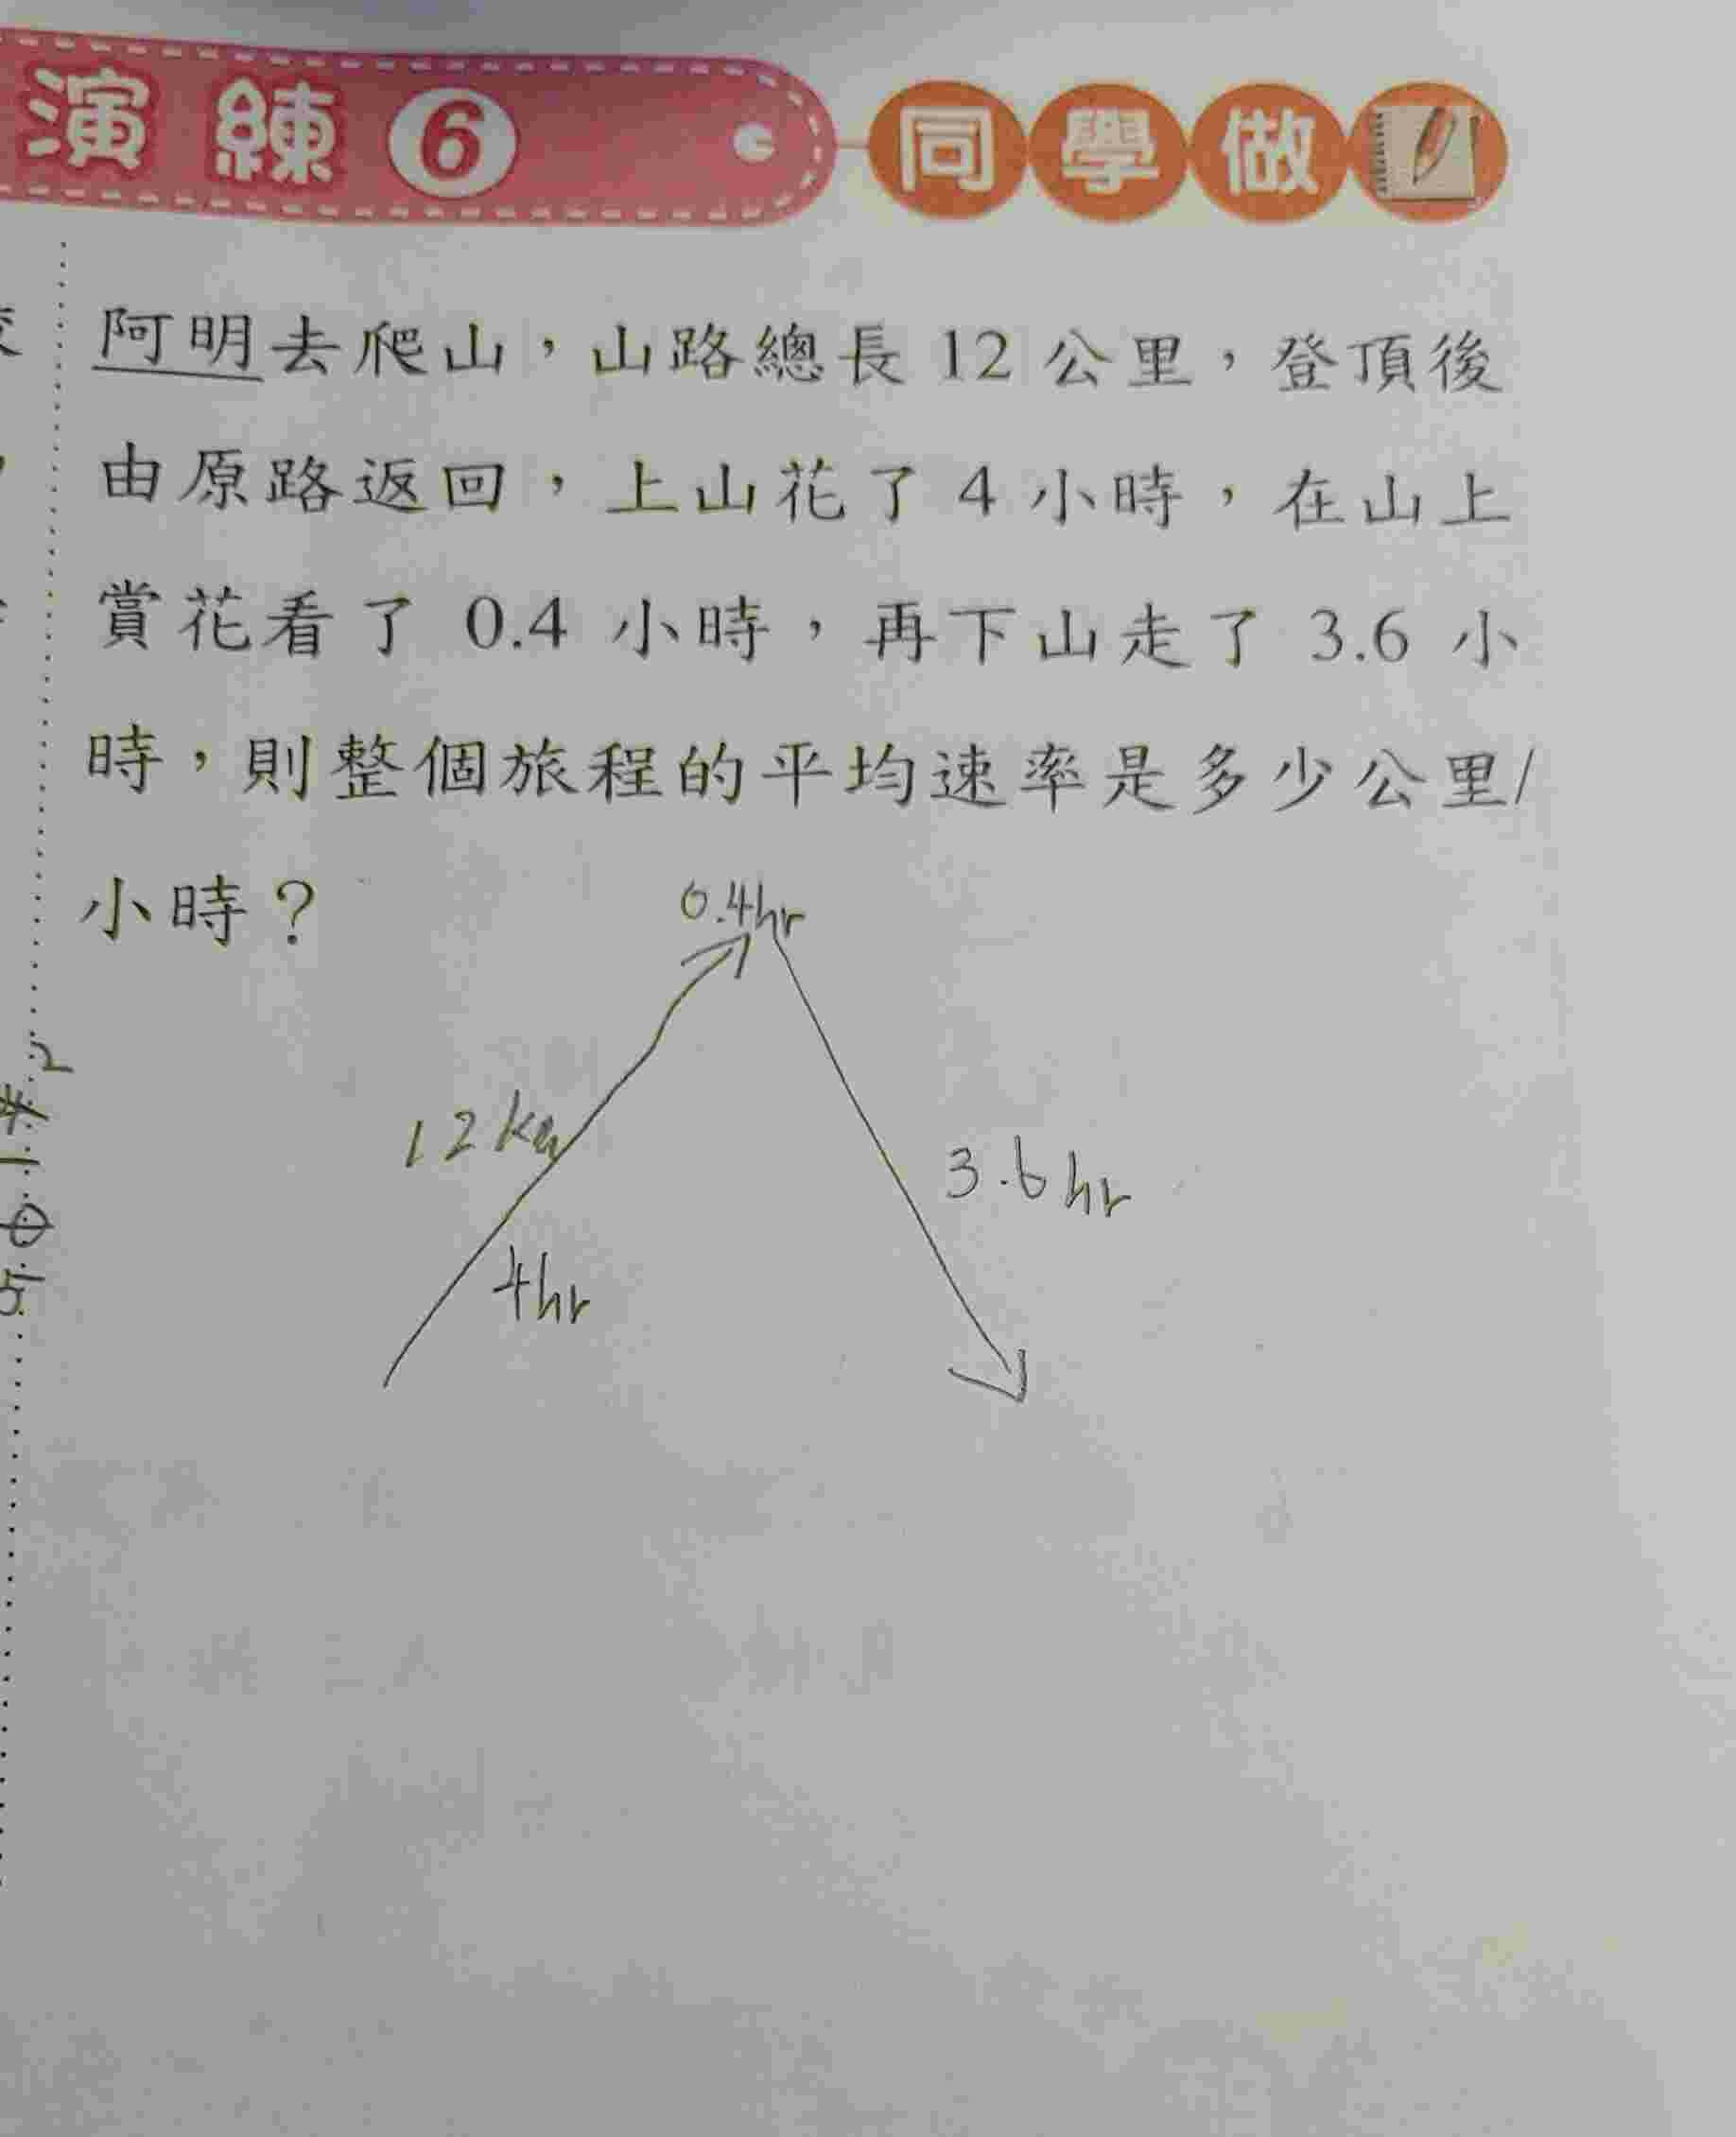 演練6 同學做
阿明去爬山，山路總長 12 公里，登頂後
由原路返回，上山花了 4 小時，在山上
賞花看了 0.4 小時，再下山走了 3.6 小
時，則整個旅程的平均速率是多少公里/
小時？
0.4hr
12 km
3.6 hr
4hr